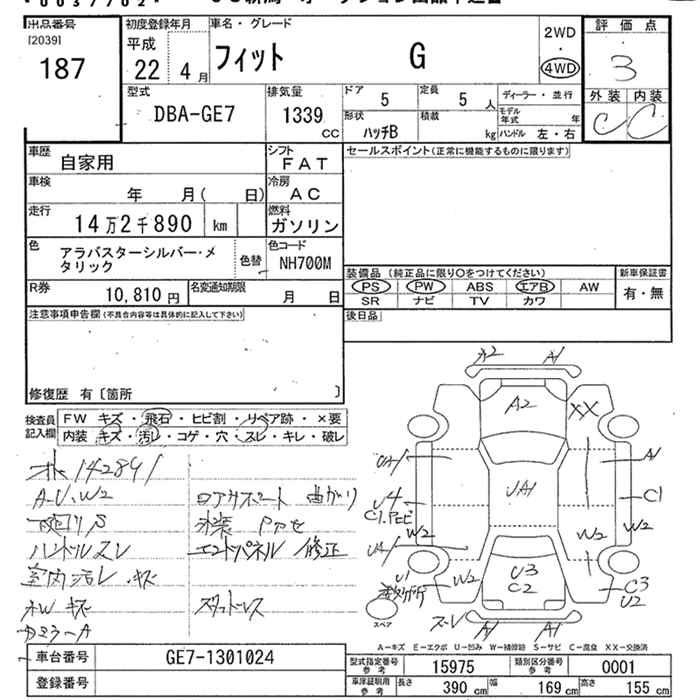 出品番号
[2039]
187
初度登録年月
平成
22年 4月
車名・グレード
フィット G
2WD
・
4WD
評価点
3
外装 内装
C C
型式
DBA-GE7
排気量
1339 CC
ドア 5
定員 5 人
ディーラー・並行
形状 ハッチB
積載 kg
モデル年式 年
ハンドル 左・右
車歴
自家用
シフト
FAT
セールスポイント(正常に機能するものに限ります)
車検
年 月( 日)
冷房
AC
走行
14万2千890 km
燃料
ガソリン
色
アラバスターシルバー・メタリック
色替
色コード
NH700M
装備品 (純正品に限り○をつけてください)
新車保証書
PS PW ABS エアB AW
有・無
SR ナビ TV カワ
R券 10,810 円
名変通知期限 月 日
後日品
注意事項申告欄(不具合内容等は具体的に記入して下さい)
修復歴 有〔箇所 〕
検査員記入欄
FW キズ・飛石・ヒビ割・リペア跡・×要
内装 キズ・汚レ・コゲ・穴・スレ・キレ・破レ
142891
A-U、W2
下廻りS
ハンドルスレ
室内汚レ・キズ
キズ
ロアサポート 曲がり
エンドパネル 修正
スタッドレス
A2 A1
A2
XX
A1
UA1
U4
C1
W2
W2
W2
W2
U3
C2
U1
C3
U2
A1 A1
スペア
A-キズ E-エクボ U-凹み W-補修跡 S-サビ C-腐食 XX-交換済
車台番号
GE7-1301024
登録番号
型式指定番号 参考
15975
類別区分番号 参考
0001
車庫証明用 参考
長さ 390 cm
幅 169 cm
高さ 155 cm